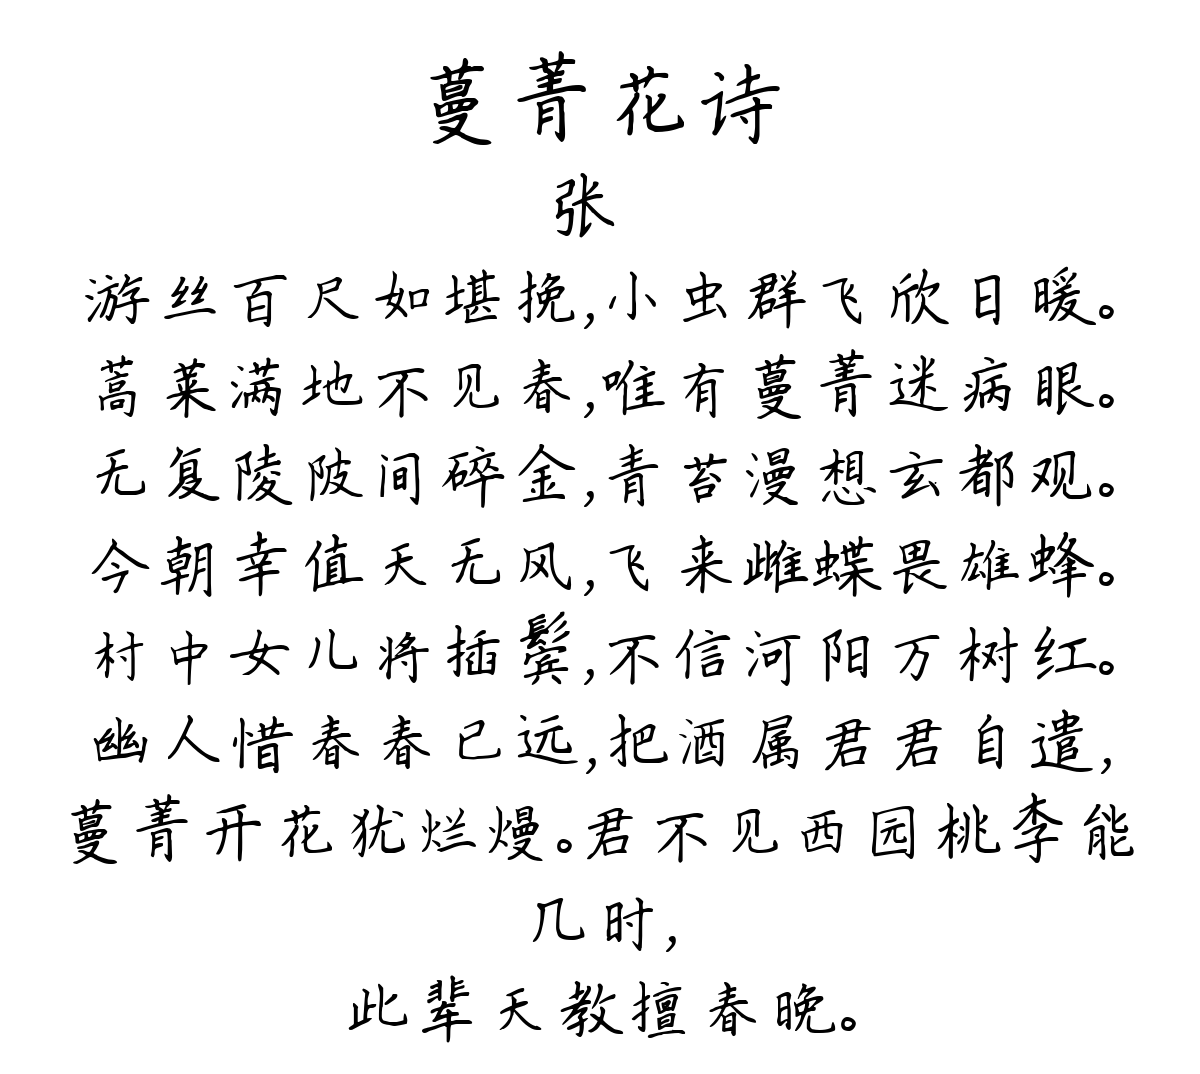 蔓菁花诗
张
游丝百尺如堪挽,小虫群飞欣日暖。
蒿莱满地不见春,唯有蔓菁迷病眼。
无复陵陂间碎金,青苔漫想玄都观。
今朝幸值天无风,飞来雌蝶畏雄蜂。
村中女儿将插鬓,不信河阳万树红。
幽人惜春春已远,把酒属君君自遣,
蔓菁开花犹烂熳。君不见西园桃李能
几时,
此辈天教擅春晚。